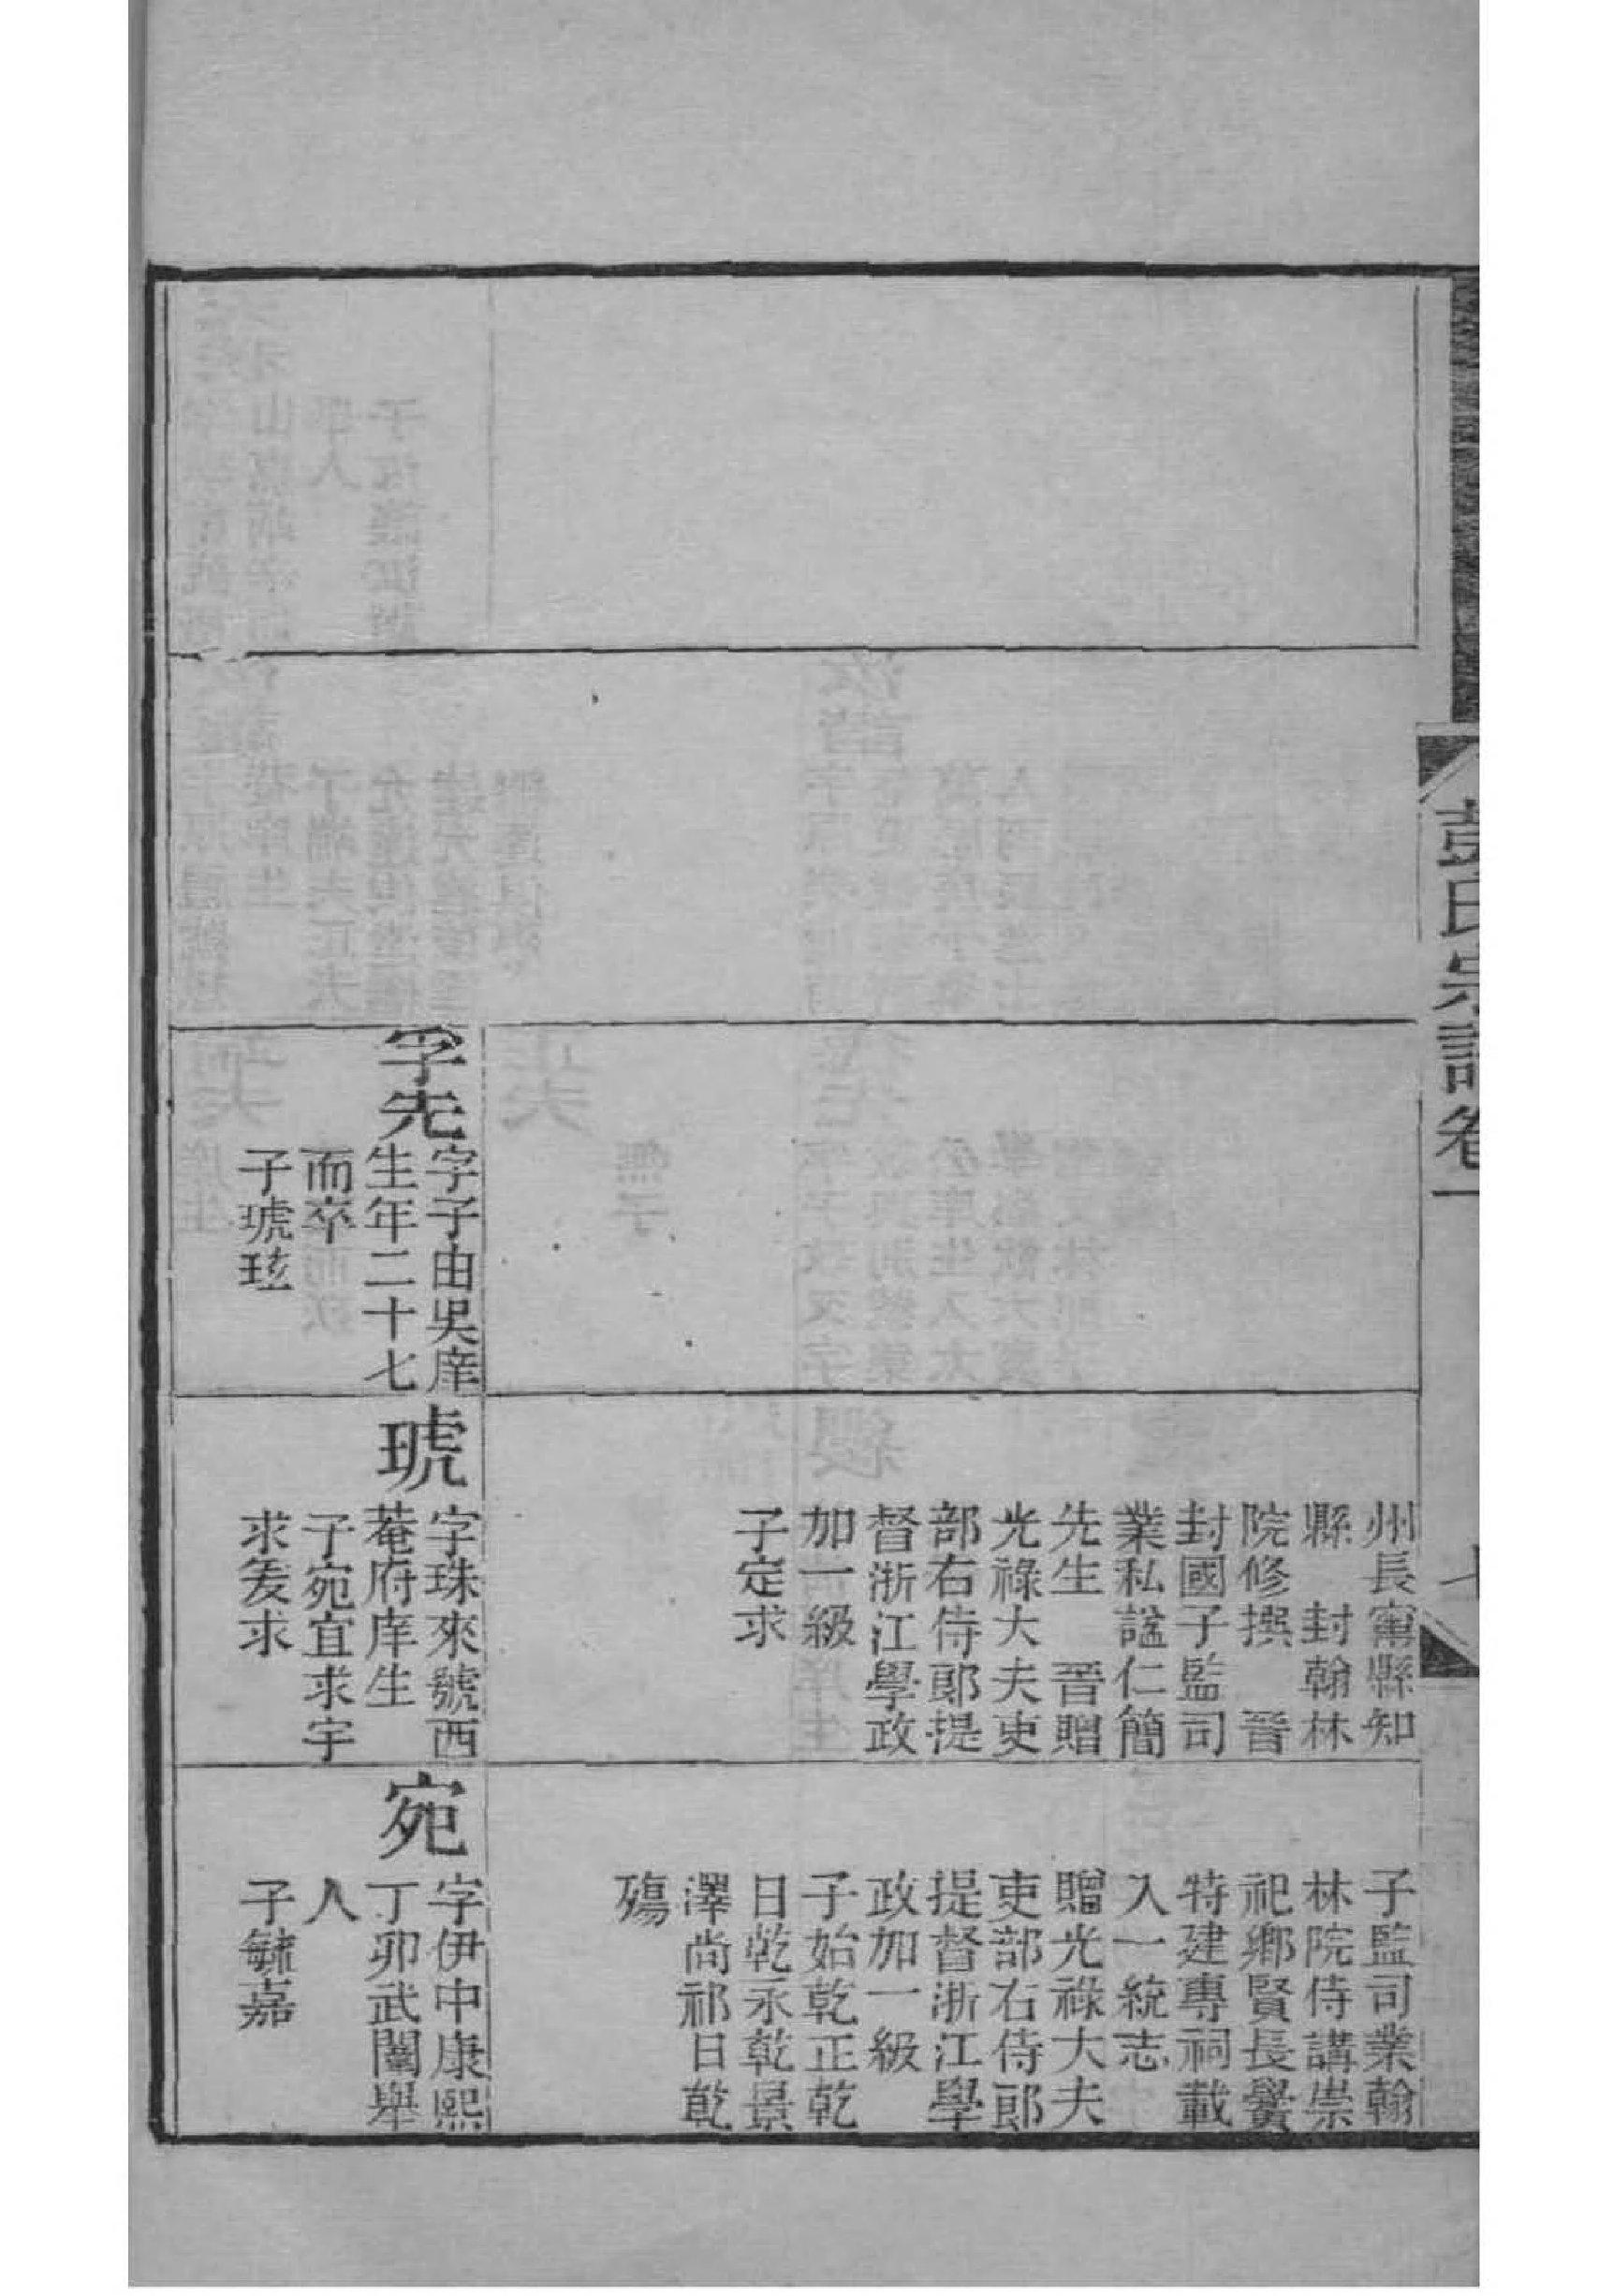 彭氏宗譜卷一
孚先
字子由吳庠
生年二十七
而卒
子琥玹
州長甯縣知
縣　封翰林
院修撰　晉
封國子監司
業私諡仁簡
先生　晉贈
光祿大夫吏
部右侍郎提
督浙江學政
加一級
子定求
琥
字珠來號西
菴府庠生
子宛宜求宇
求爰求
子監司業翰
林院侍講崇
祀鄉賢長黌
特建專祠載
入一統志
贈光祿大夫
吏部右侍郎
提督浙江學
政加一級
子始乾正乾
日乾永乾景
澤尚祁日乾
殤
宛
字伊中康熙
丁卯武闈舉
人
子毓嘉